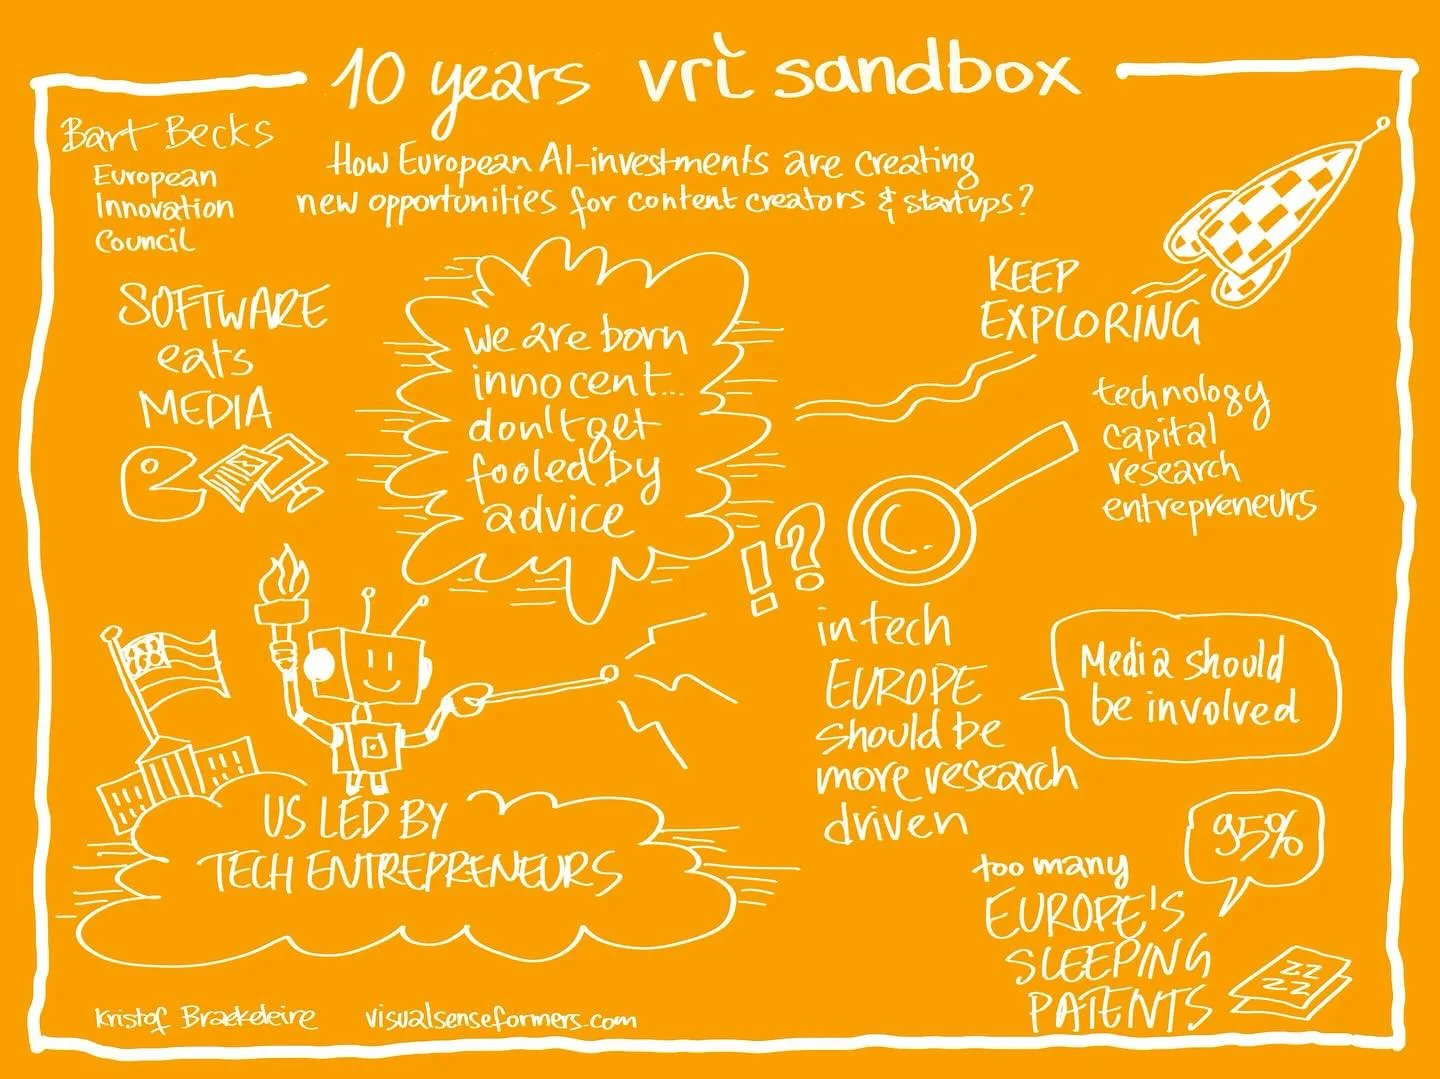 10 years vrt sandbox
Bart Becks
European
Innovation
Council
How European AI-investments are creating
new opportunities for content creators & startups?
SOFTWARE
eats
MEDIA
we are born
innocent...
don't get
fooled by
advice
KEEP
EXPLORING
technology
capital
research
entrepreneurs
!?
in tech
EUROPE
should be
more research
driven
Media should
be involved
US LED BY
TECH ENTREPRENEURS
95%
too many
EUROPE'S
SLEEPING
PATENTS
ZZ
ZZ
Kristof Braekeleire visualsenseformers.com